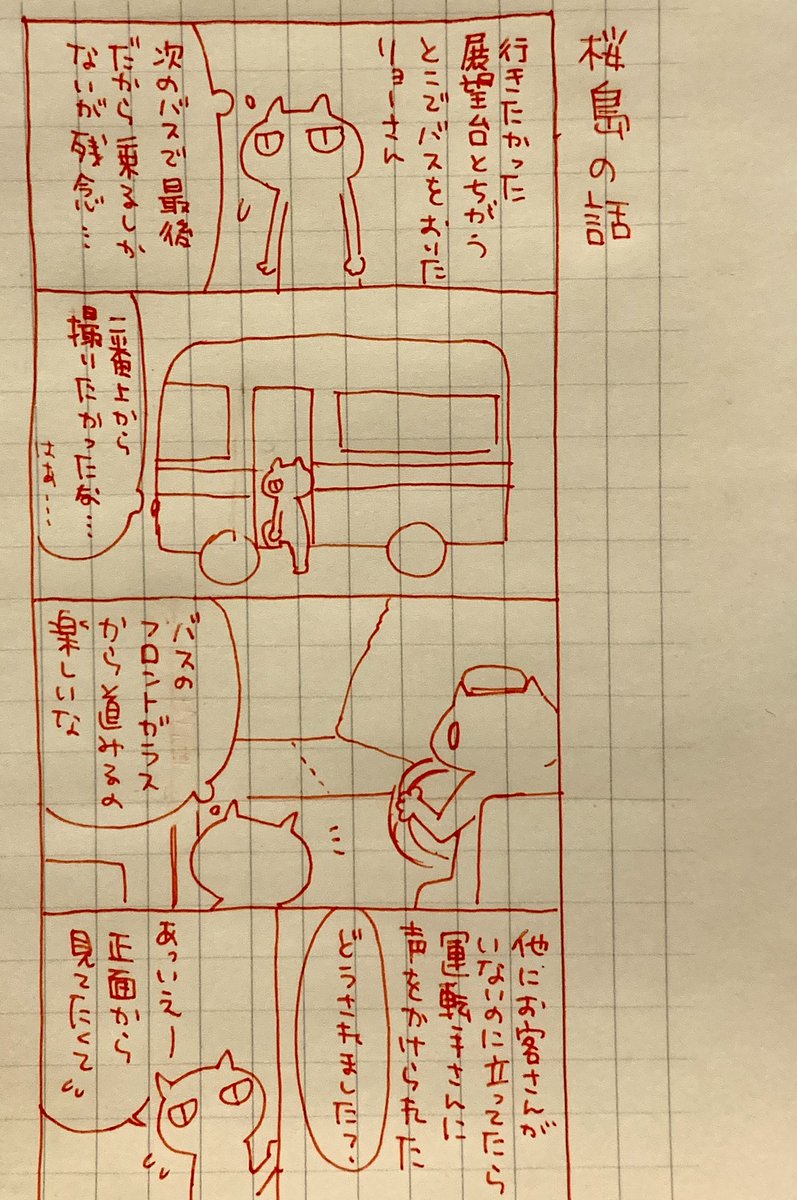 桜島の話
行きたかった
展望台とちがう
とこでバスをおりた
リョーさん
次のバスで最後
だから乗るしか
ないが残念…
一番上から
撮りたかったな…
はぁ…
バスの
フロントガラス
から道みるの
楽しいな
他にお客さんが
いないのに立ってたら
運転手さんに
声をかけられた
どうされました?
あっいえー
正面から
見てたくて